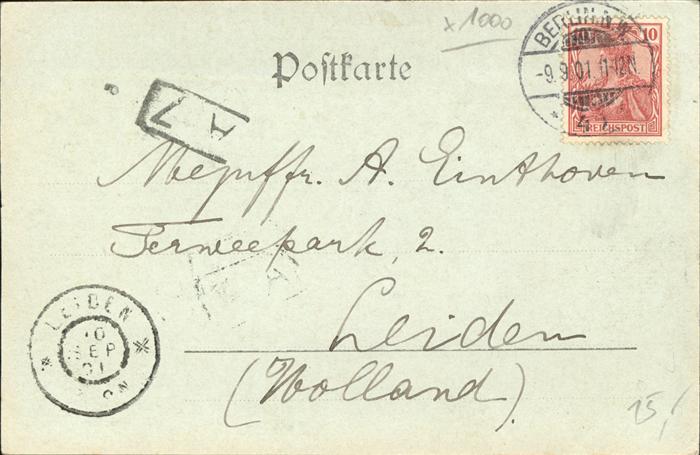 x 1000
BERLIN N.W.
-9.9.01.11-12N.
10
REICHSPOST
Postkarte
A 7
Mejuffr. A. Einthoven
Terweepark, 2.
Leiden
(Holland).
LEIDEN
10
SEP
01
15,-